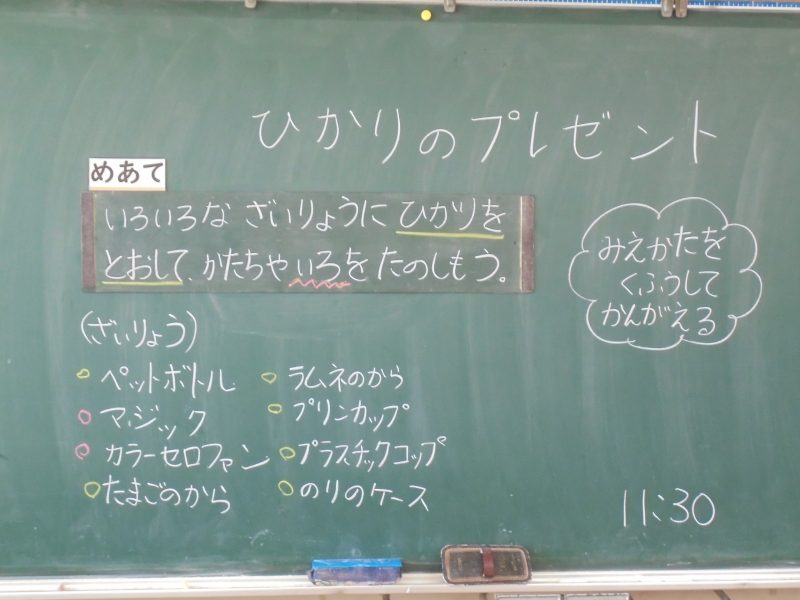 ひかりのプレゼント
めあて
いろいろな ざいりょうに ひかりを
とおして、かたちや いろを たのしもう。
みえかたを
くふうして
かんがえる
(ざいりょう)
ペットボトル
マジック
カラーセロファン
たまごのから
ラムネのから
プリンカップ
プラスチックコップ
のりのケース
11:30